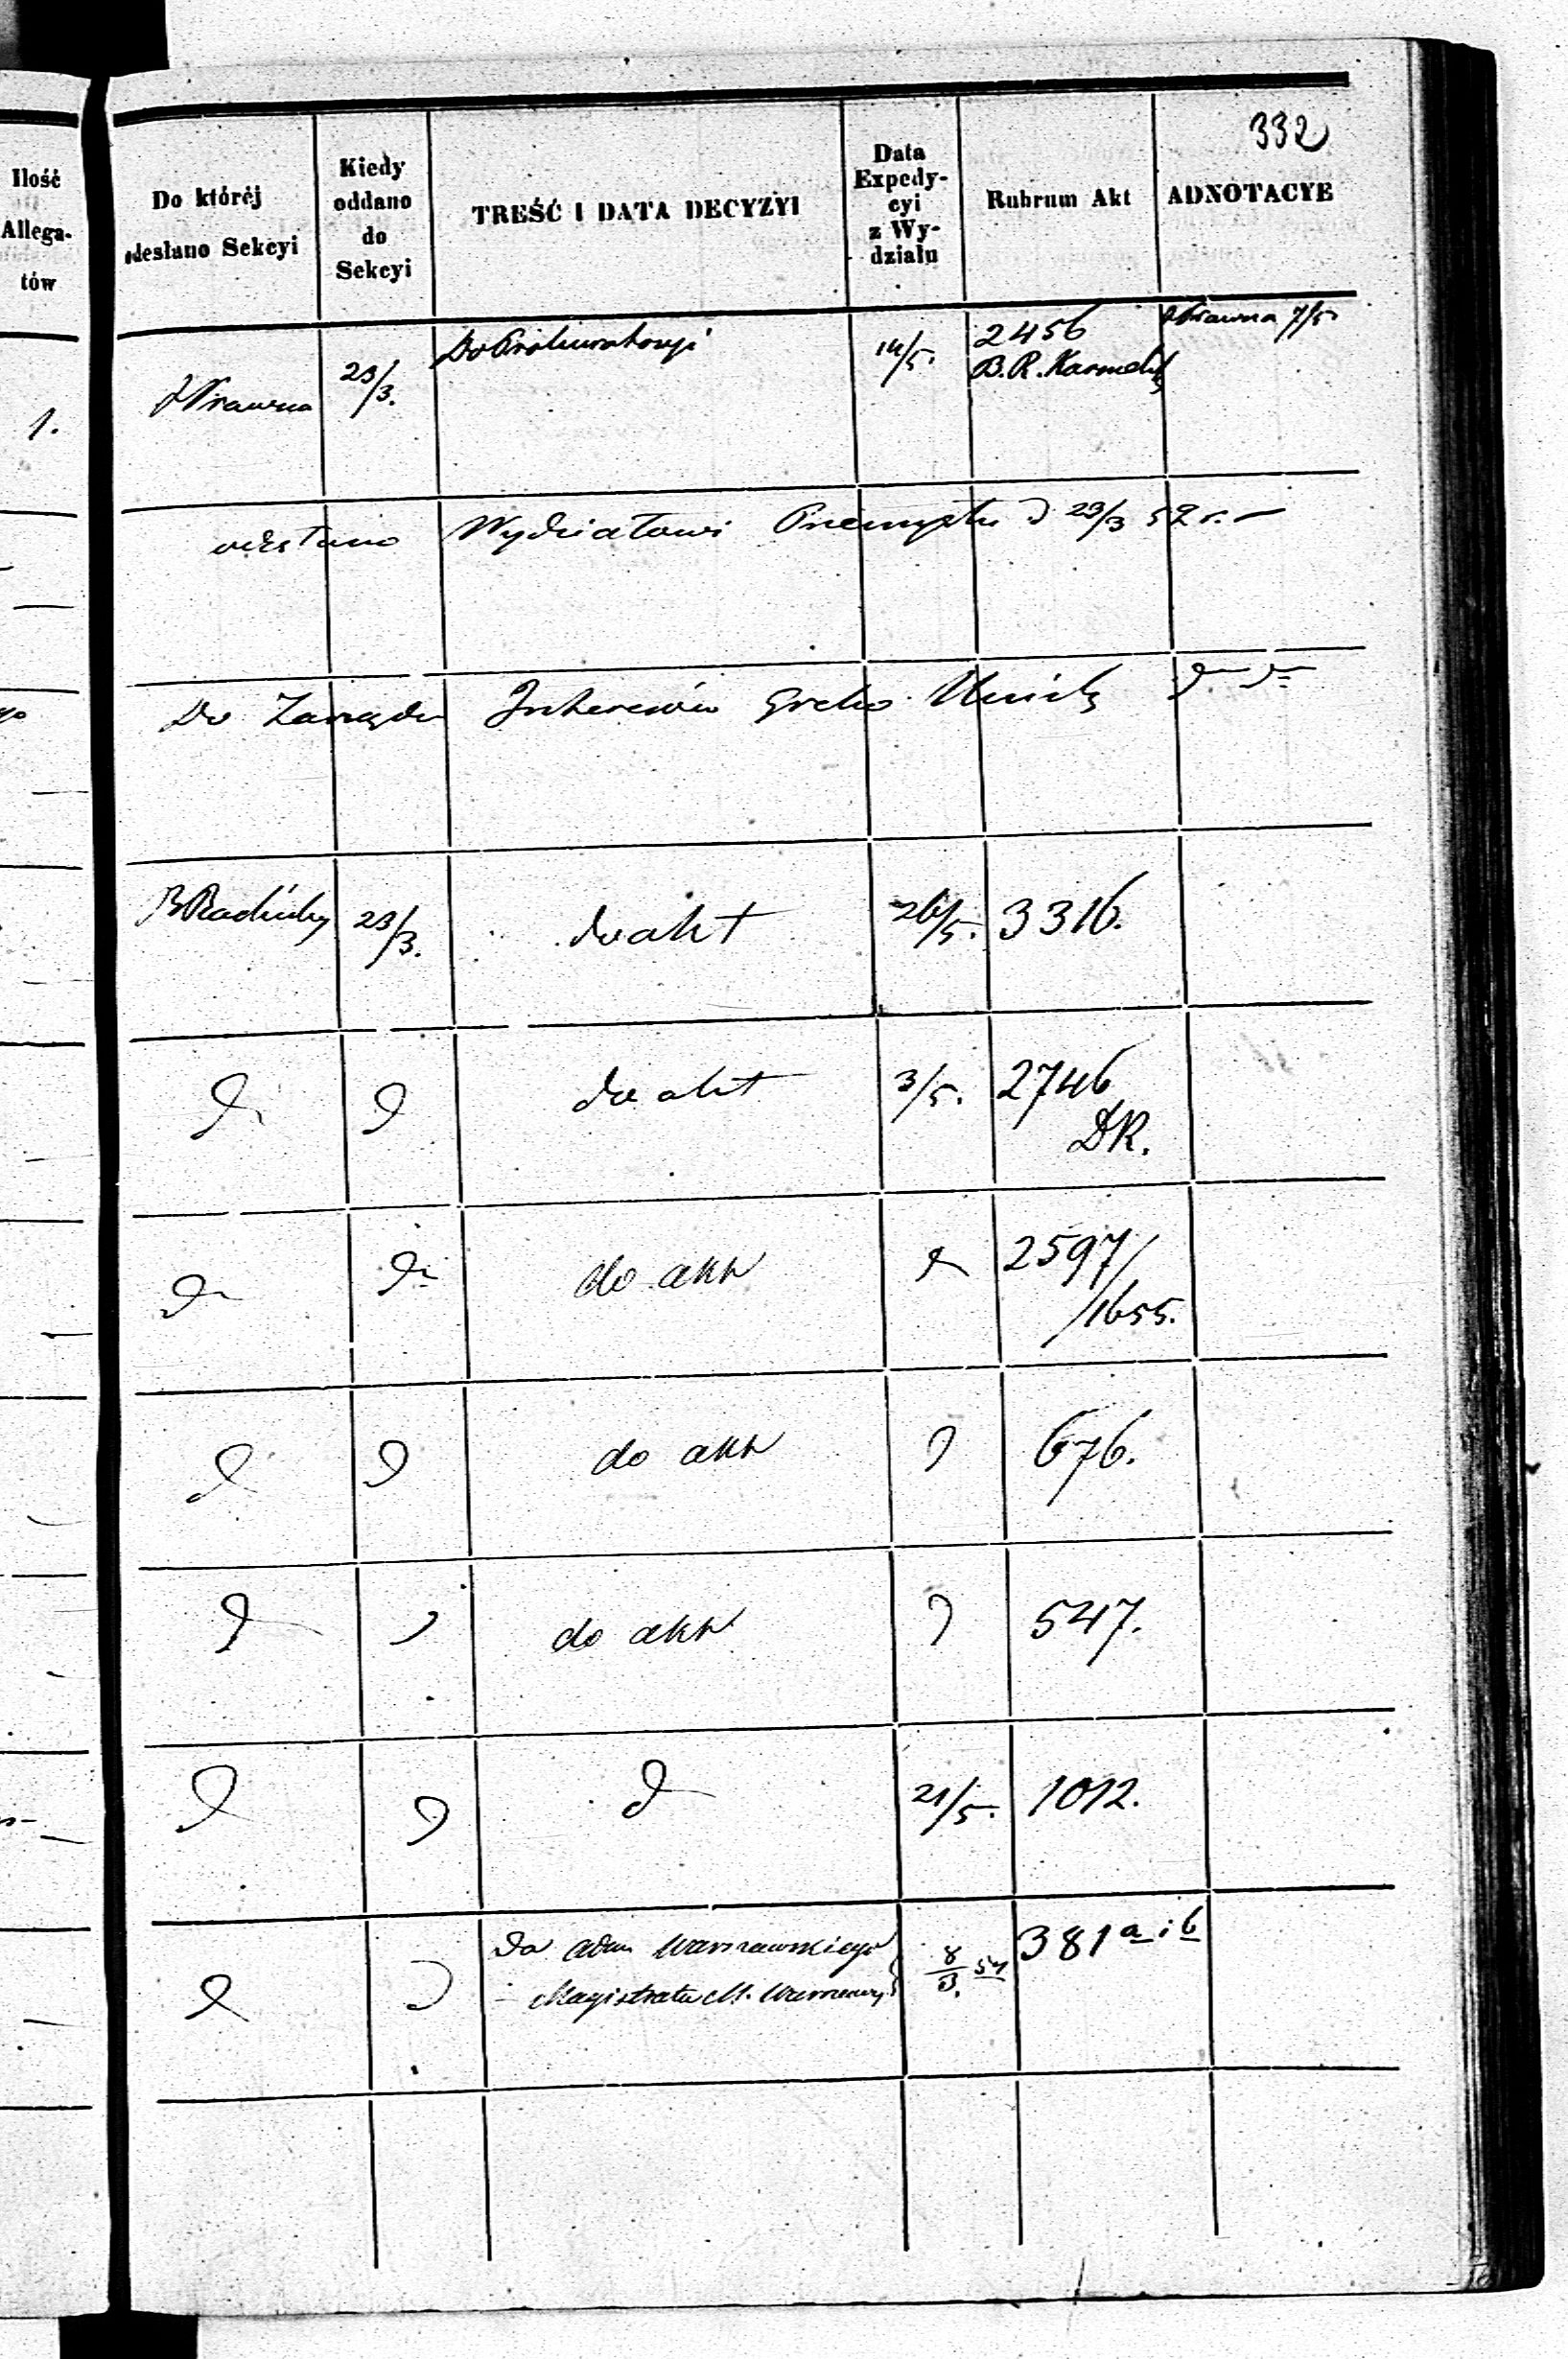 332
Ilość
Allega-
tów
Do któréj
odesłano Sekcyi
Kiedy
oddano
do
Sekcyi
TREŚĆ I DATA DECYZYI
Data
Expedy-
cyi
z Wy-
działu
Rubrum Akt
ADNOTACYE
1.
Prawna
23/3.
Do Prokuratoryi
14/5.
2456
B. R. Karmel
Prawna 7/5.
odesłano Wydziałowi Przemysłu D 23/3 52 r.
Do Zarządu Interesów Greko Unick
B Radick
23/3.
do akt
26/5.
3316.
do akt
3/5.
2746
DR.
do akt
2597/
/1655.
do akt
676.
do akt
547.
21/5.
1012.
Do Adm Warszawskiego
Magistratu M. Warszawy
8/3. 54
381 a i b